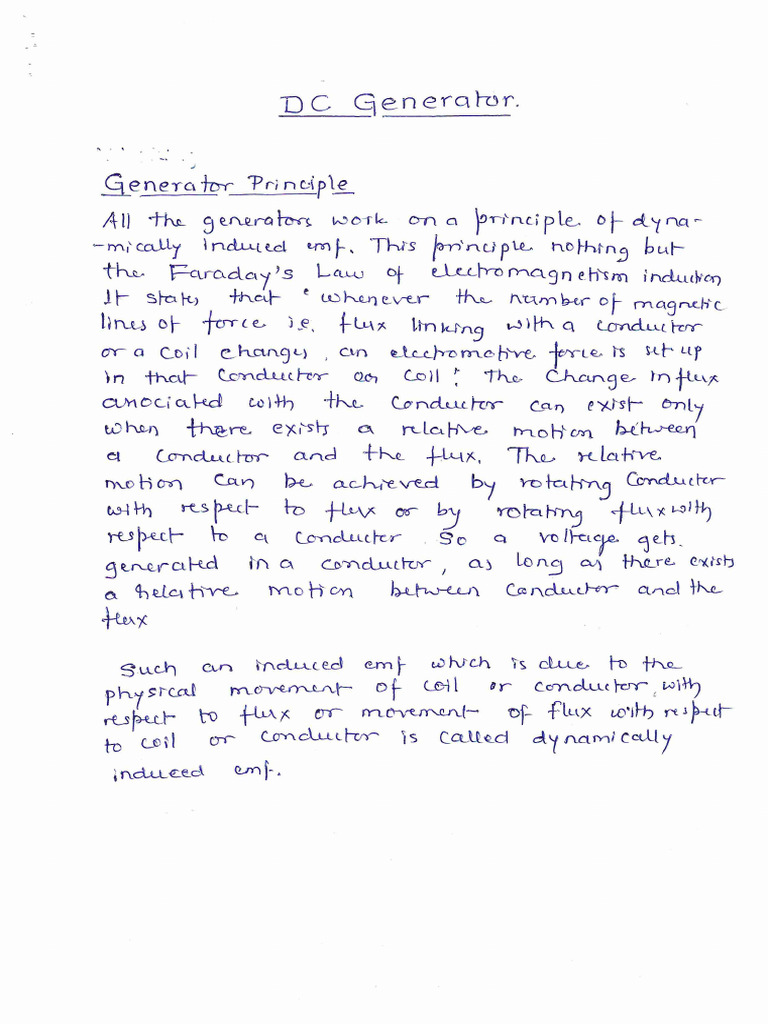 DC Generator.
Generator Principle
All the generators work on a principle of dyna-
-mically induced emf. This principle nothing but
the Faraday's Law of electromagnetism induction
It states that "whenever the number of magnetic
lines of force i.e. flux linking with a conductor
or a coil changes, an electromotive force is set up
in that conductor or coil". The change in flux
associated with the conductor can exist only
when there exists a relative motion between
a conductor and the flux. The relative
motion can be achieved by rotating conductor
with respect to flux or by rotating flux with
respect to a conductor. So a voltage gets
generated in a conductor, as long as there exists
a relative motion between conductor and the
flux
Such an induced emf which is due to the
physical movement of coil or conductor with
respect to flux or movement of flux with respect
to coil or conductor is called dynamically
induced emf.